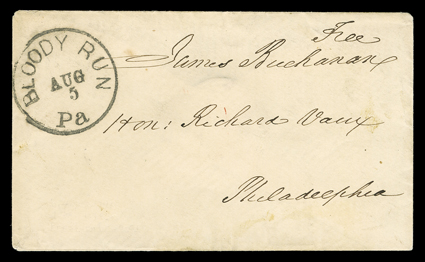 BLOODY RUN
AUG
5
Pa
Free
James Buchanan
Hon: Richard Vaux
Philadelphia